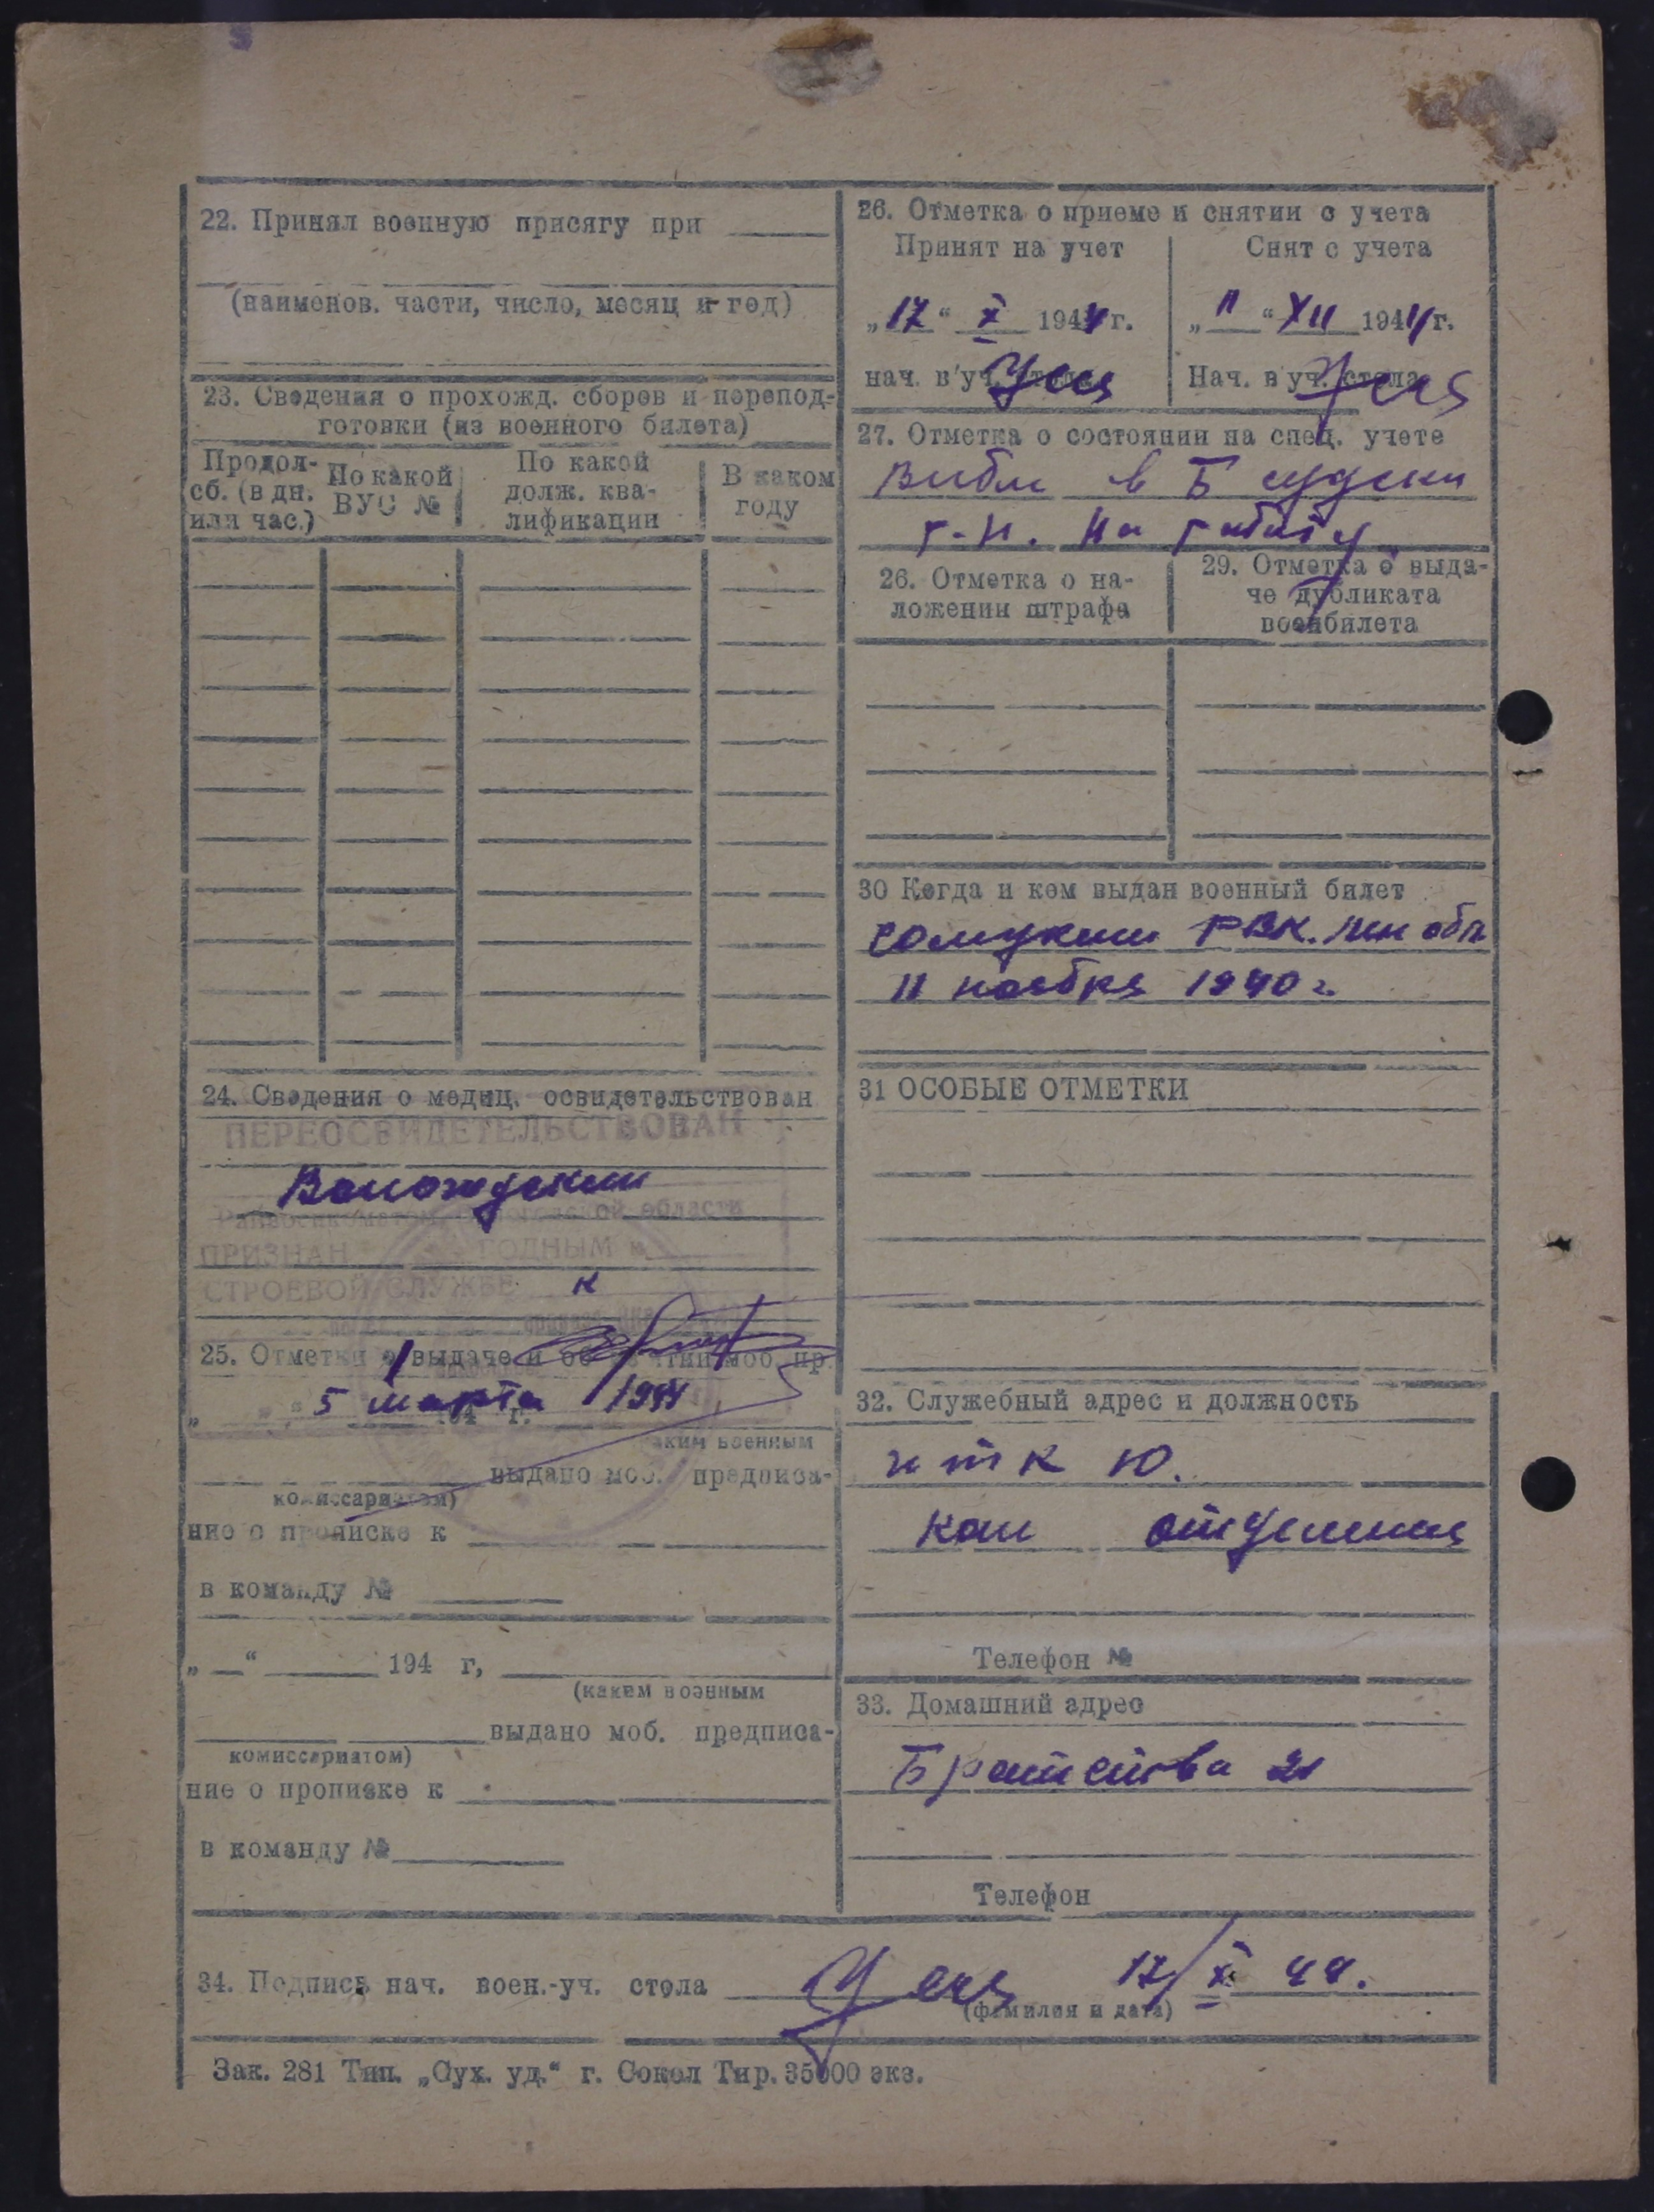 22. Принял военную присягу при
(наименов. части, число, месяц и год)
23. Сведения о прохожд. сборов и перепод-
готовки (из военного билета)
Продол-
сб. (в дн.
или час.)
По какой
ВУС №
По какой
долж. ква-
лификации
В каком
году
24. Сведения о медиц. освидетельствован
ПЕРЕОСВИДЕТЕЛЬСТВОВАН
Вологодским
Райвоенкоматом Вологодской области
ПРИЗНАН ГОДНЫМ к
СТРОЕВОЙ СЛУЖБЕ
к
25. Отметки о выдаче и моб. пр.
5 марта 1944
194 г.
ким военным
выдано моб. предписа-
комиссариатом)
ние о прописке к
в команду №
„ “ 194 г,
(каким военным
выдано моб. предписа-
комиссариатом)
ние о прописке к
в команду №
26. Отметка о приеме и снятии с учета
Принят на учет
„17“ X 1944 г.
нач. в'уч. стола
Снят с учета
„11“ XII 1944 г.
Нач. в'уч. стола
27. Отметка о состоянии на спец. учете
в Б
на работу
26. Отметка о на-
ложении штрафа
29. Отметка о выда-
че дубликата
военбилета
30 Когда и кем выдан военный билет
РВК. Лен обл
11 ноября 1940 г.
31 ОСОБЫЕ ОТМЕТКИ
32. Служебный адрес и должность
итк Ю.
ком отделения
Телефон №
33. Домашний адрес
Братства 21
Телефон
34. Подпись нач. воен.-уч. стола 17/X 44.
(фамилия и дата)
Зак. 281 Тип. „Сух. уд.“ г. Сокол Тир. 35000 экз.